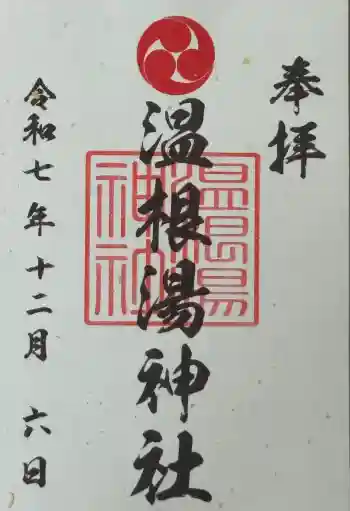 奉拝
温根湯神社
温根湯
神社
令和七年十二月六日